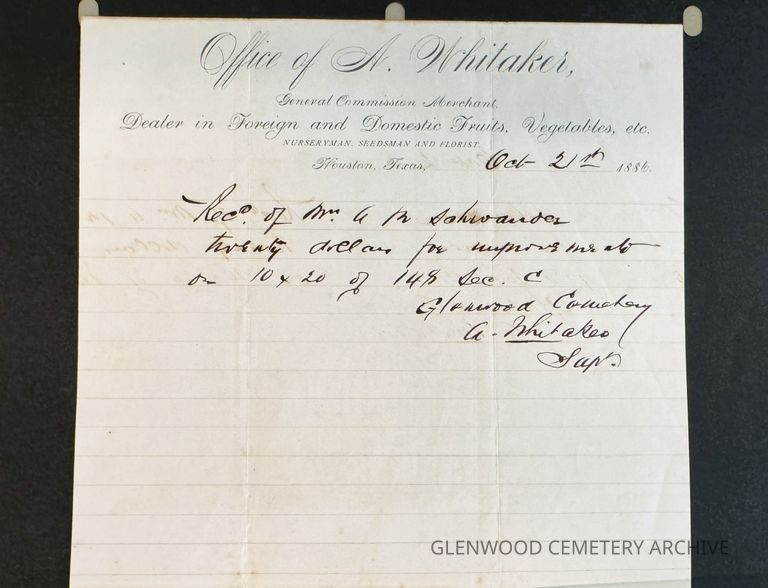 Office of A. Whitaker,
General Commission Merchant,
Dealer in Foreign and Domestic Fruits, Vegetables, etc.
NURSERYMAN, SEEDSMAN AND FLORIST.
Houston, Texas, Oct 21st 1886.
Recd. of Mr. A M Schwander
twenty dollars for improvements
on 10 x 20 of 148 Sec. C
Glenwood Cemetery
A. Whitaker
Supt.
GLENWOOD CEMETERY ARCHIVE